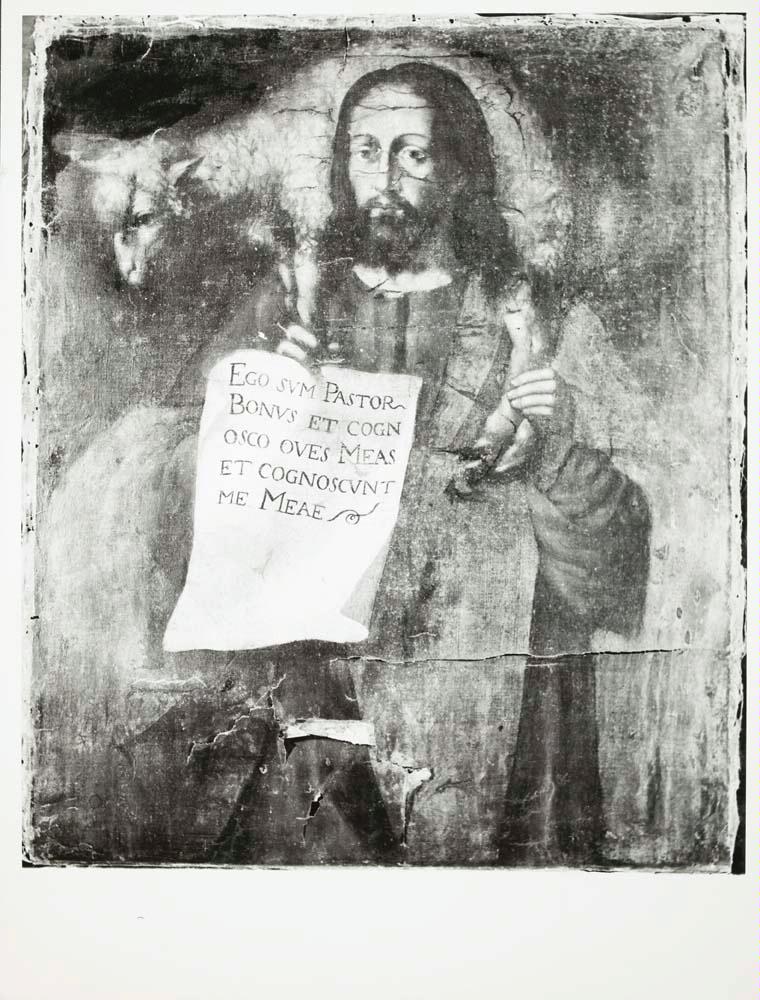 EGO SVM PASTOR
BONVS ET COGN
OSCO OVES MEAS
ET COGNOSCVNT
ME MEAE